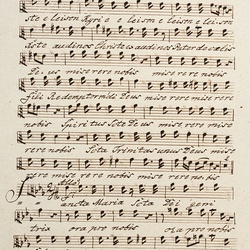 ste e leison Kyri e e leison e leison e lei son
xste audi nos Christe ex audi nos Pater de cælis
De us mise rere nobis mise rere nobis
Fili Redemptor mdi Deus mise rere mise rere
nobis Spiritus Scte Deus mise rere mise
rere nobis Scta Trinitas unus Deus mise
rere mise rere nobis mise rere nobis
ancta Maria Scta Dei geni
trix ora pro nobis ora pro nobis